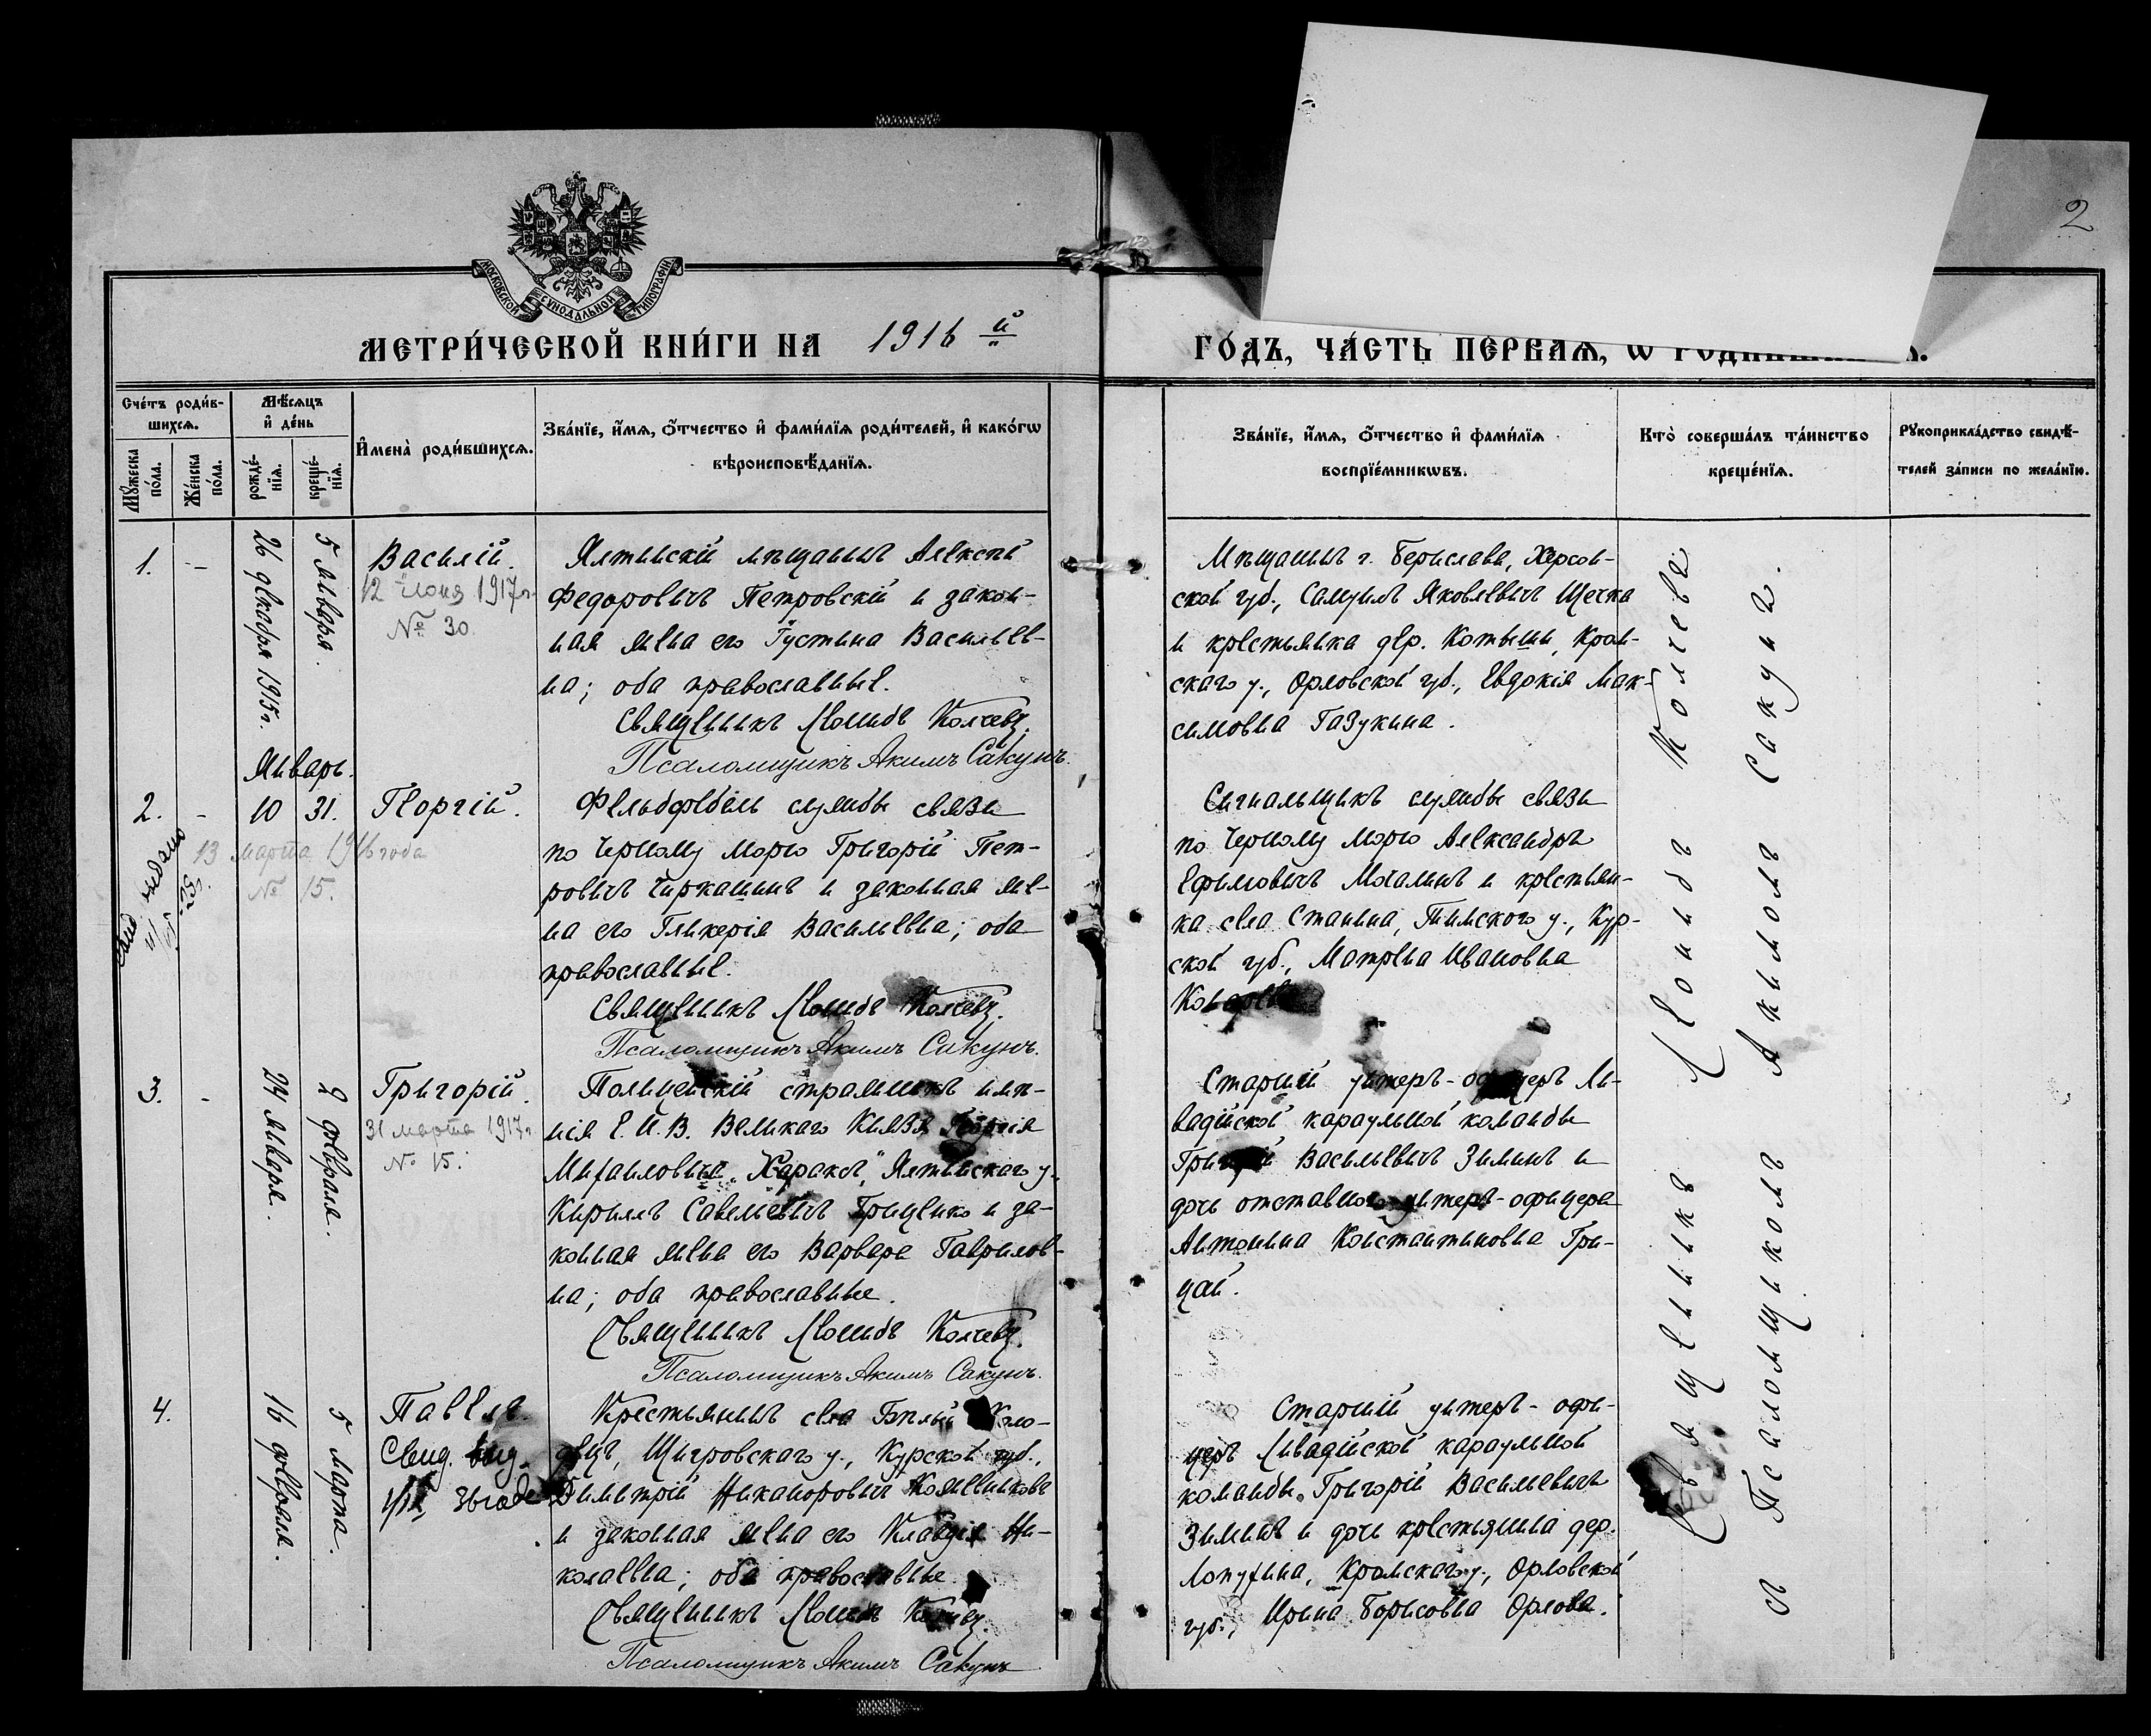 2
МОСКОВСКОЙ СѴНОДАЛЬНОЙ ТИПОГРАФІИ
МЕТРИ́ЧЕСКОЙ КНИ́ГИ НА 1916 й
ГО́ДЪ, ЧА́СТЬ ПЕ́РВАѦ, Ѡ
Сче́тъ роди́в-
шихсѧ.
Мѣ́сѧцъ
и҆ де́нь
Мꙋ́жеска
по́ла.
Же́нска
по́ла.
рожде́-
нїѧ.
креще́-
нїѧ.
И҆мена̀ роди́вшихсѧ.
Зва́нїе, и҆́мѧ, ѻ҆́тчество и҆ фами́лїѧ роди́телей, и҆ како́гѡ
вѣроисповѣ́данїѧ.
Зва́нїе, и҆́мѧ, ѻ҆́тчество и҆ фами́лїѧ
воспрїе́мникѡвъ.
Кто̀ соверша́лъ та́инство
креще́нїѧ.
Рꙋкоприкла́дство свидѣ́-
телей за́писи по жела́нїю.
1.
-
26 декабря 1915 г.
5 января.
Василій.
12 июня 1917 г.
№ 30.
Ялтинскій мѣщанинъ Алексѣй
Федоровичъ Петровскій и закон-
ная жена его Іустина Васильев-
на; оба православные.
Священникъ Леонидъ Колчевъ.
Псаломщикъ Акимъ Сакунъ.
Мѣщанинъ г. Берислава, Херсон-
ской губ., Самуилъ Яковлевичъ Щечка
и крестьянка дер. Котыши, Кром-
скаго у., Орловской губ., Евдокія Мак-
симовна Газукина.
Январь.
2.
-
10
31.
Георгій.
13 марта 1916 года
№ 15.
Фельдфебель службы связи
по Черному морю Григорій Пет-
ровичъ Чиркашинъ и законная же-
на его Гликерія Васильевна; оба
православные.
Священникъ Леонидъ Колчевъ.
Псаломщикъ Акимъ Сакунъ.
Сигнальщикъ службы связи
по Черному морю Александръ
Ефимовичъ Мочалинъ и крестьян-
ка села Станина, Тимского у., Кур-
ской губ., Матрена Ивановна
3.
-
24 января.
2 февраля.
Григорій.
31 марта 1917 г.
№ 15.
Полицейскій стражникъ имѣ-
нія Е. И. В. Великаго Князя Георгія
Михаиловича „Хараксъ", Ялтинскаго у.,
Кириллъ Савельевичъ Гриценко и за-
конная жена его Варвара Гаврилов-
на; оба православные.
Священникъ Леонидъ Колчевъ.
Псаломщикъ Акимъ Сакунъ.
Старшій унтеръ-офицеръ Ли-
вадійской караульной команды
Григорій Васильевичъ Зиминъ и
дочь отставного унтеръ-офицера
Антонина Константиновна Гри-
цай.
4.
16 февраля.
5 марта.
Павелъ.
Свид. выд.
Крестьянинъ села Бѣлый Коло-
дезь, Щигровскаго у., Курской губ.,
Димитрій Никаноровичъ Кожевниковъ
и законная жена его Клавдія Ни-
колаевна; оба православные.
Священникъ Леонидъ Колчевъ.
Псаломщикъ Акимъ Сакунъ
Старшій унтеръ-офи-
церъ Ливадійской караульной
команды Григорій Васильевичъ
Зиминъ и дочь крестьянина дер.
Лопухина, Кромскаго у., Орловской
губ., Ирина Борисовна Орлова.
Священникъ Леонидъ Колчевъ
съ Псаломщикомъ Акимомъ Сакунъ.